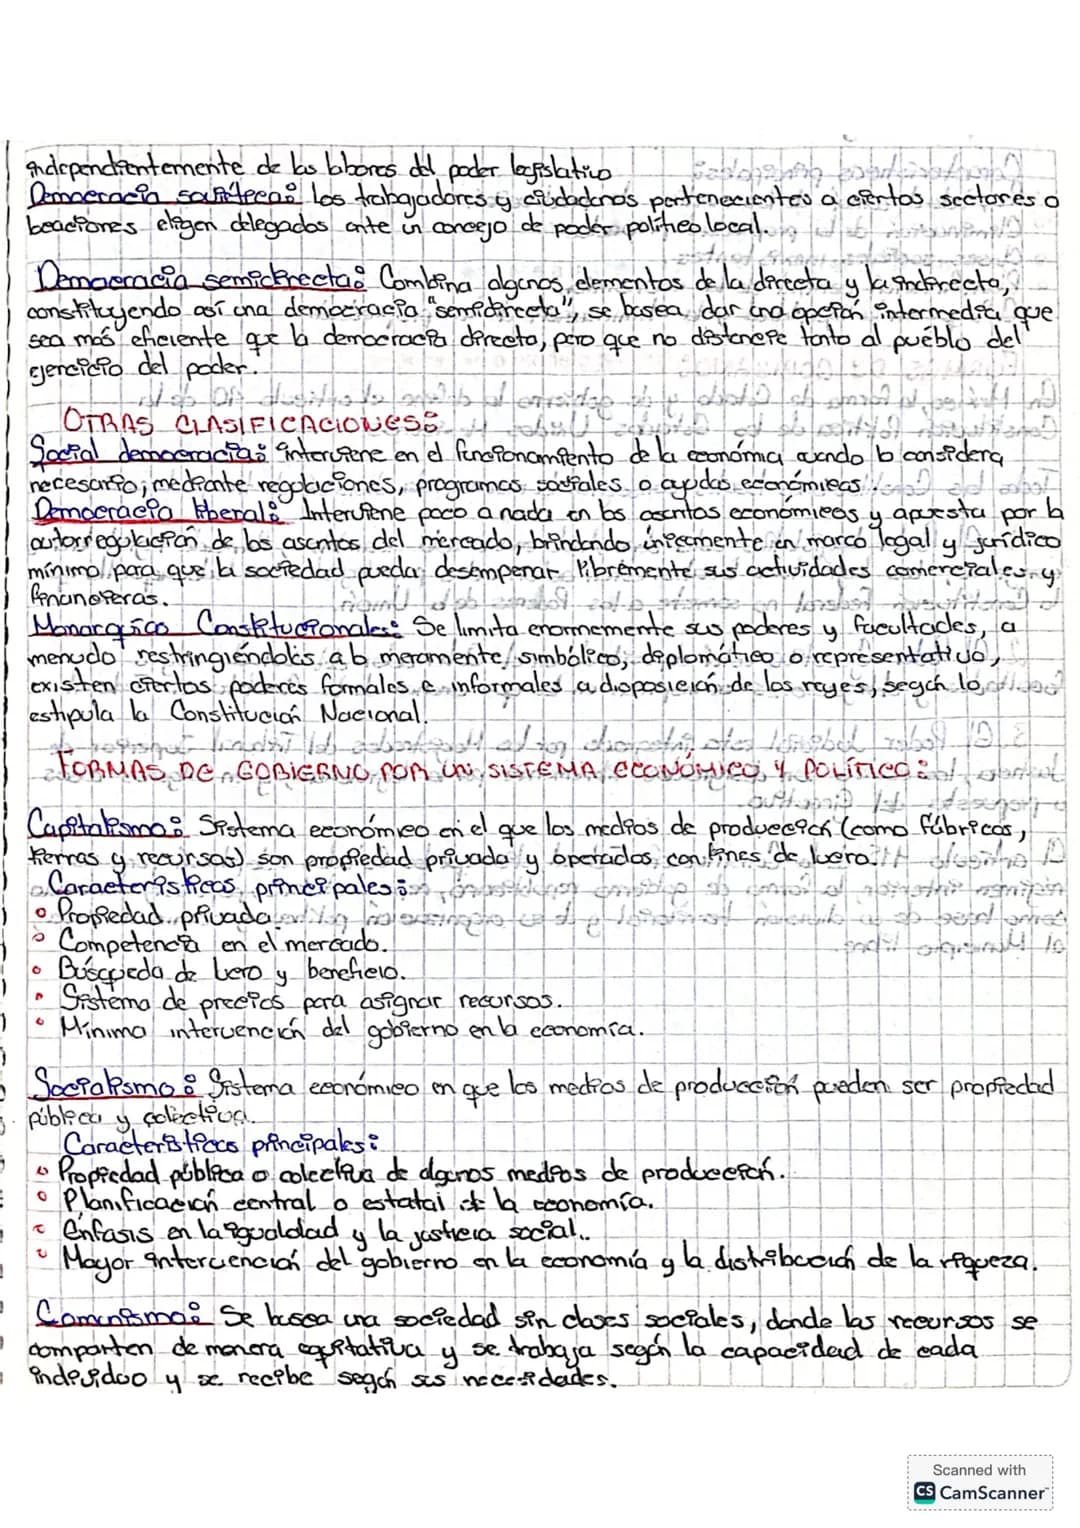 independientemente de las labores del poder legislativo
Democracia soviética: los trabajadores y ciudadanos pertenecientes a ciertos sectores o
beaciones eligen delegados ante un concejo de poder político local.
Democracia semidirecta: Combina algunos elementos de la directa y la indirecta,
constituyendo así una democracia "semidirecta", se busca dar una opción intermedia que
sea más eficiente que la democracia directa, pero que no distancie tanto al pueblo del
ejercicio del poder.
OTRAS CLASIFICACIONES:
Social democracia: interviene en el funcionamiento de la económia cuando lo considera
necesario; mediante regulaciones, programas sociales o ayudas económicas.
Democracia liberal: Interviene poco a nada en los asuntos económicos y apuesta por la
autorregulación de los asuntos del mercado, brindando únicamente un marco legal y jurídico
mínimo para que la sociedad pueda desempeñar libremente sus actividades comerciales y
financieras.
Monarquías Constitucionales: Se limita enormemente sus poderes y facultades, a
menudo restringiéndolos a lo meramente simbólico, diplomático o representativo,
existen ciertos poderes formales e informales a disposición de los reyes, según lo
estipula la Constitución Nacional.
FORMAS DE GOBIERNO POR UN SISTEMA ECONÓMICO Y POLÍTICO:
Capitalismo: Sistema económico en el que los medios de producción (como fábricas,
tierras y recursos) son propiedad privada y operados con fines de lucro.
Características principales:
• Propiedad privada
• Competencia en el mercado.
• Búsqueda de lucro y beneficio.
• Sistema de precios para asignar recursos.
• Mínima intervención del gobierno en la economía.
Socialismo: Sistema económico en que los medios de producción pueden ser propiedad
pública y colectiva.
Características principales:
• Propiedad pública o colectiva de algunos medios de producción.
• Planificación central o estatal de la economía.
• Énfasis en la igualdad y la justicia social.
• Mayor intervención del gobierno en la economía y la distribución de la riqueza.
Comunismo: Se busca una sociedad sin clases sociales, donde los recursos se
comparten de manera equitativa y se trabaja según la capacidad de cada
individuo y se recibe según sus necesidades.
Scanned with
CS CamScanner